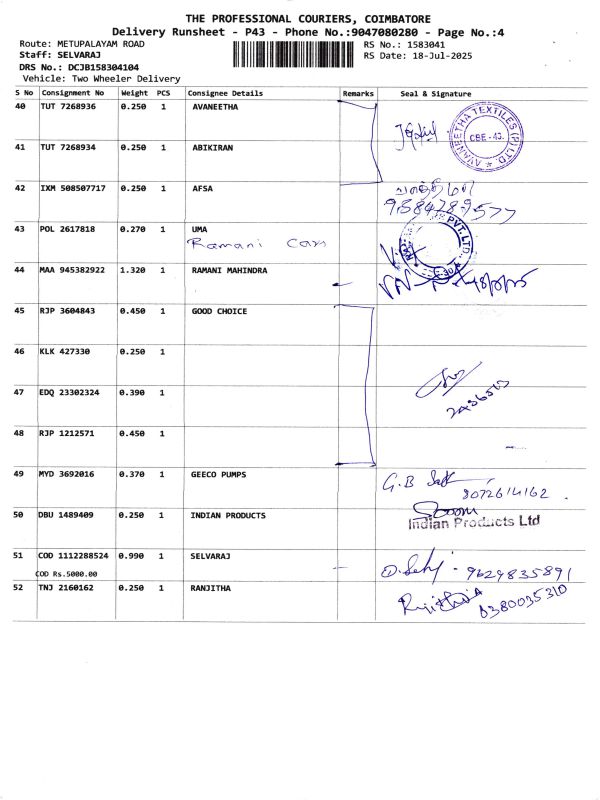 THE PROFESSIONAL COURIERS, COIMBATORE
Delivery Runsheet - P43 - Phone No.:9047080280 - Page No.:4
Route: METUPALAYAM ROAD RS No.: 1583041
Staff: SELVARAJ RS Date: 18-Jul-2025
DRS No.: DCJB158304104
Vehicle: Two Wheeler Delivery
S No Consignment No Weight PCS Consignee Details Remarks Seal & Signature
40 TUT 7268936 0.250 1 AVANEETHA
AVANEETHA TEXTILES (P) LTD. CBE-43.
41 TUT 7268934 0.250 1 ABIKIRAN
42 IXM 508507717 0.250 1 AFSA
43 POL 2617818 0.270 1 UMA
Ramani Cars
PVT. LTD.
44 MAA 945382922 1.320 1 RAMANI MAHINDRA
45 RJP 3604843 0.450 1 GOOD CHOICE
46 KLK 427330 0.250 1
47 EDQ 23302324 0.390 1
48 RJP 1212571 0.450 1
49 MYD 3692016 0.370 1 GEECO PUMPS G.B
8072614162
50 DBU 1489409 0.250 1 INDIAN PRODUCTS
Indian Products Ltd
51 COD 1112288524 0.990 1 SELVARAJ 9629835891
COD Rs.5000.00
52 TNJ 2160162 0.250 1 RANJITHA 6380035310